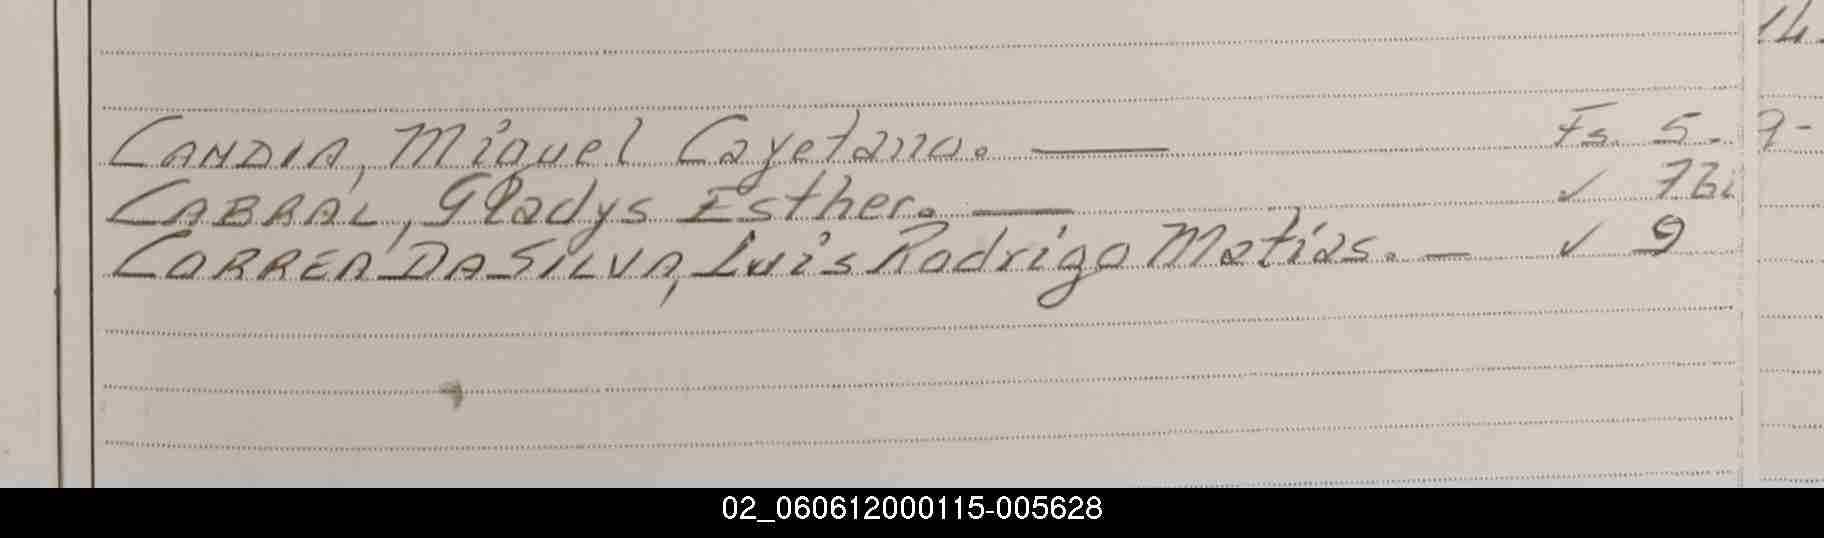 14.
CANDIA, Miguel Cayetano. — Fs. 5. 7-
CABRAL, Gladys Esther. — ✓
CORREA DA SILVA, Luis Rodrigo Matias. — ✓ 9
02_060612000115-005628